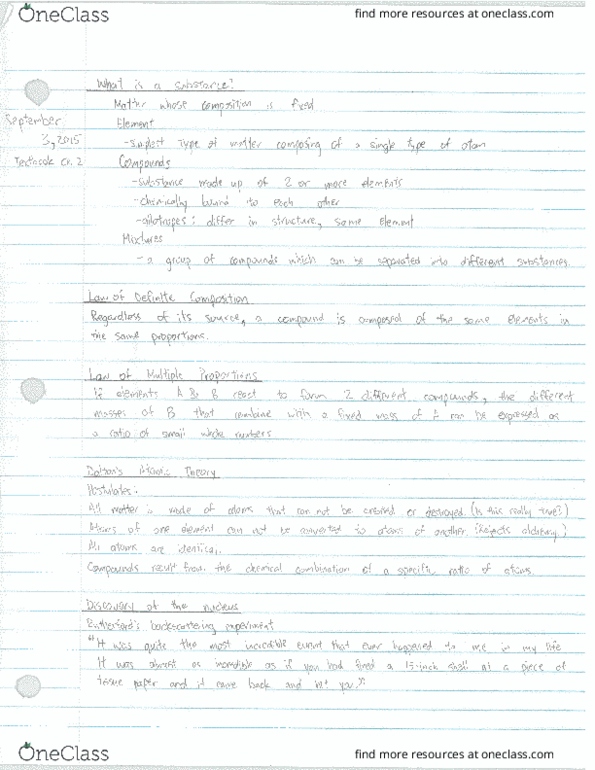 OneClass
find more resources at oneclass.com
What is a substance?
Matter whose composition is fixed
September
Element
3, 2015
-simplest type of matter composing of a single type of atom
Textbook Ch. 2
Compounds
-substance made up of 2 or more elements
-chemically bound to each other
-allotropes: differ in structure, same element
Mixtures
- a group of compounds which can be separated into different substances.
Law of Definite Composition
Regardless of its source, a compound is composed of the same elements in
the same proportions.
Law of Multiple Proportions
If elements A & B react to form 2 different compounds, the different
masses of B that combine with a fixed mass of A can be expressed as
a ratio of small whole numbers
Dalton's Atomic Theory
Postulates:
All matter is made of atoms that can not be created or destroyed (Is this really true?)
Atoms of one element can not be converted to atoms of another. (Rejects alchemy)
All atoms are identical.
Compounds result from the chemical combination of a specific ratio of atoms.
Discovery of the nucleus
Rutherford's backscattering experiment
"It was quite the most incredible event that ever happened to me in my life
It was almost as incredible as if you had fired a 15-inch shell at a piece of
tissue paper and it came back and hit you."
OneClass
find more resources at oneclass.com